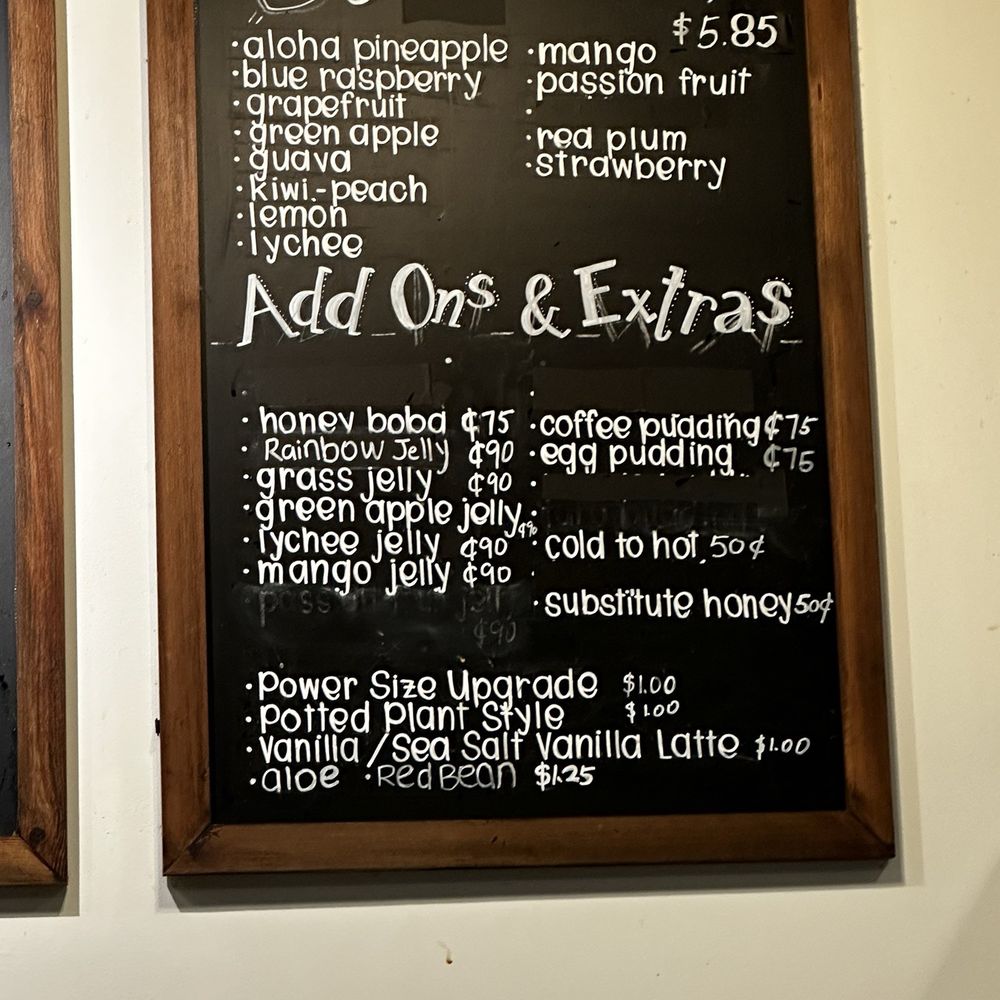 $5.85
·aloha pineapple
·blue raspberry
·grapefruit
·green apple
·guava
·kiwi-peach
·lemon
·lychee
·mango
·passion fruit
·
·red plum
·strawberry
Add Ons & Extras
·honey boba ¢75
·Rainbow Jelly ¢90
·grass jelly ¢90
·green apple jelly ¢90
·lychee jelly ¢90
·mango jelly ¢90
¢90
·coffee pudding ¢75
·egg pudding ¢75
·cold to hot 50¢
·substitute honey 50¢
·Power Size Upgrade $1.00
·Potted Plant Style $1.00
·Vanilla/Sea Salt Vanilla Latte $1.00
·aloe ·Red Bean $1.25